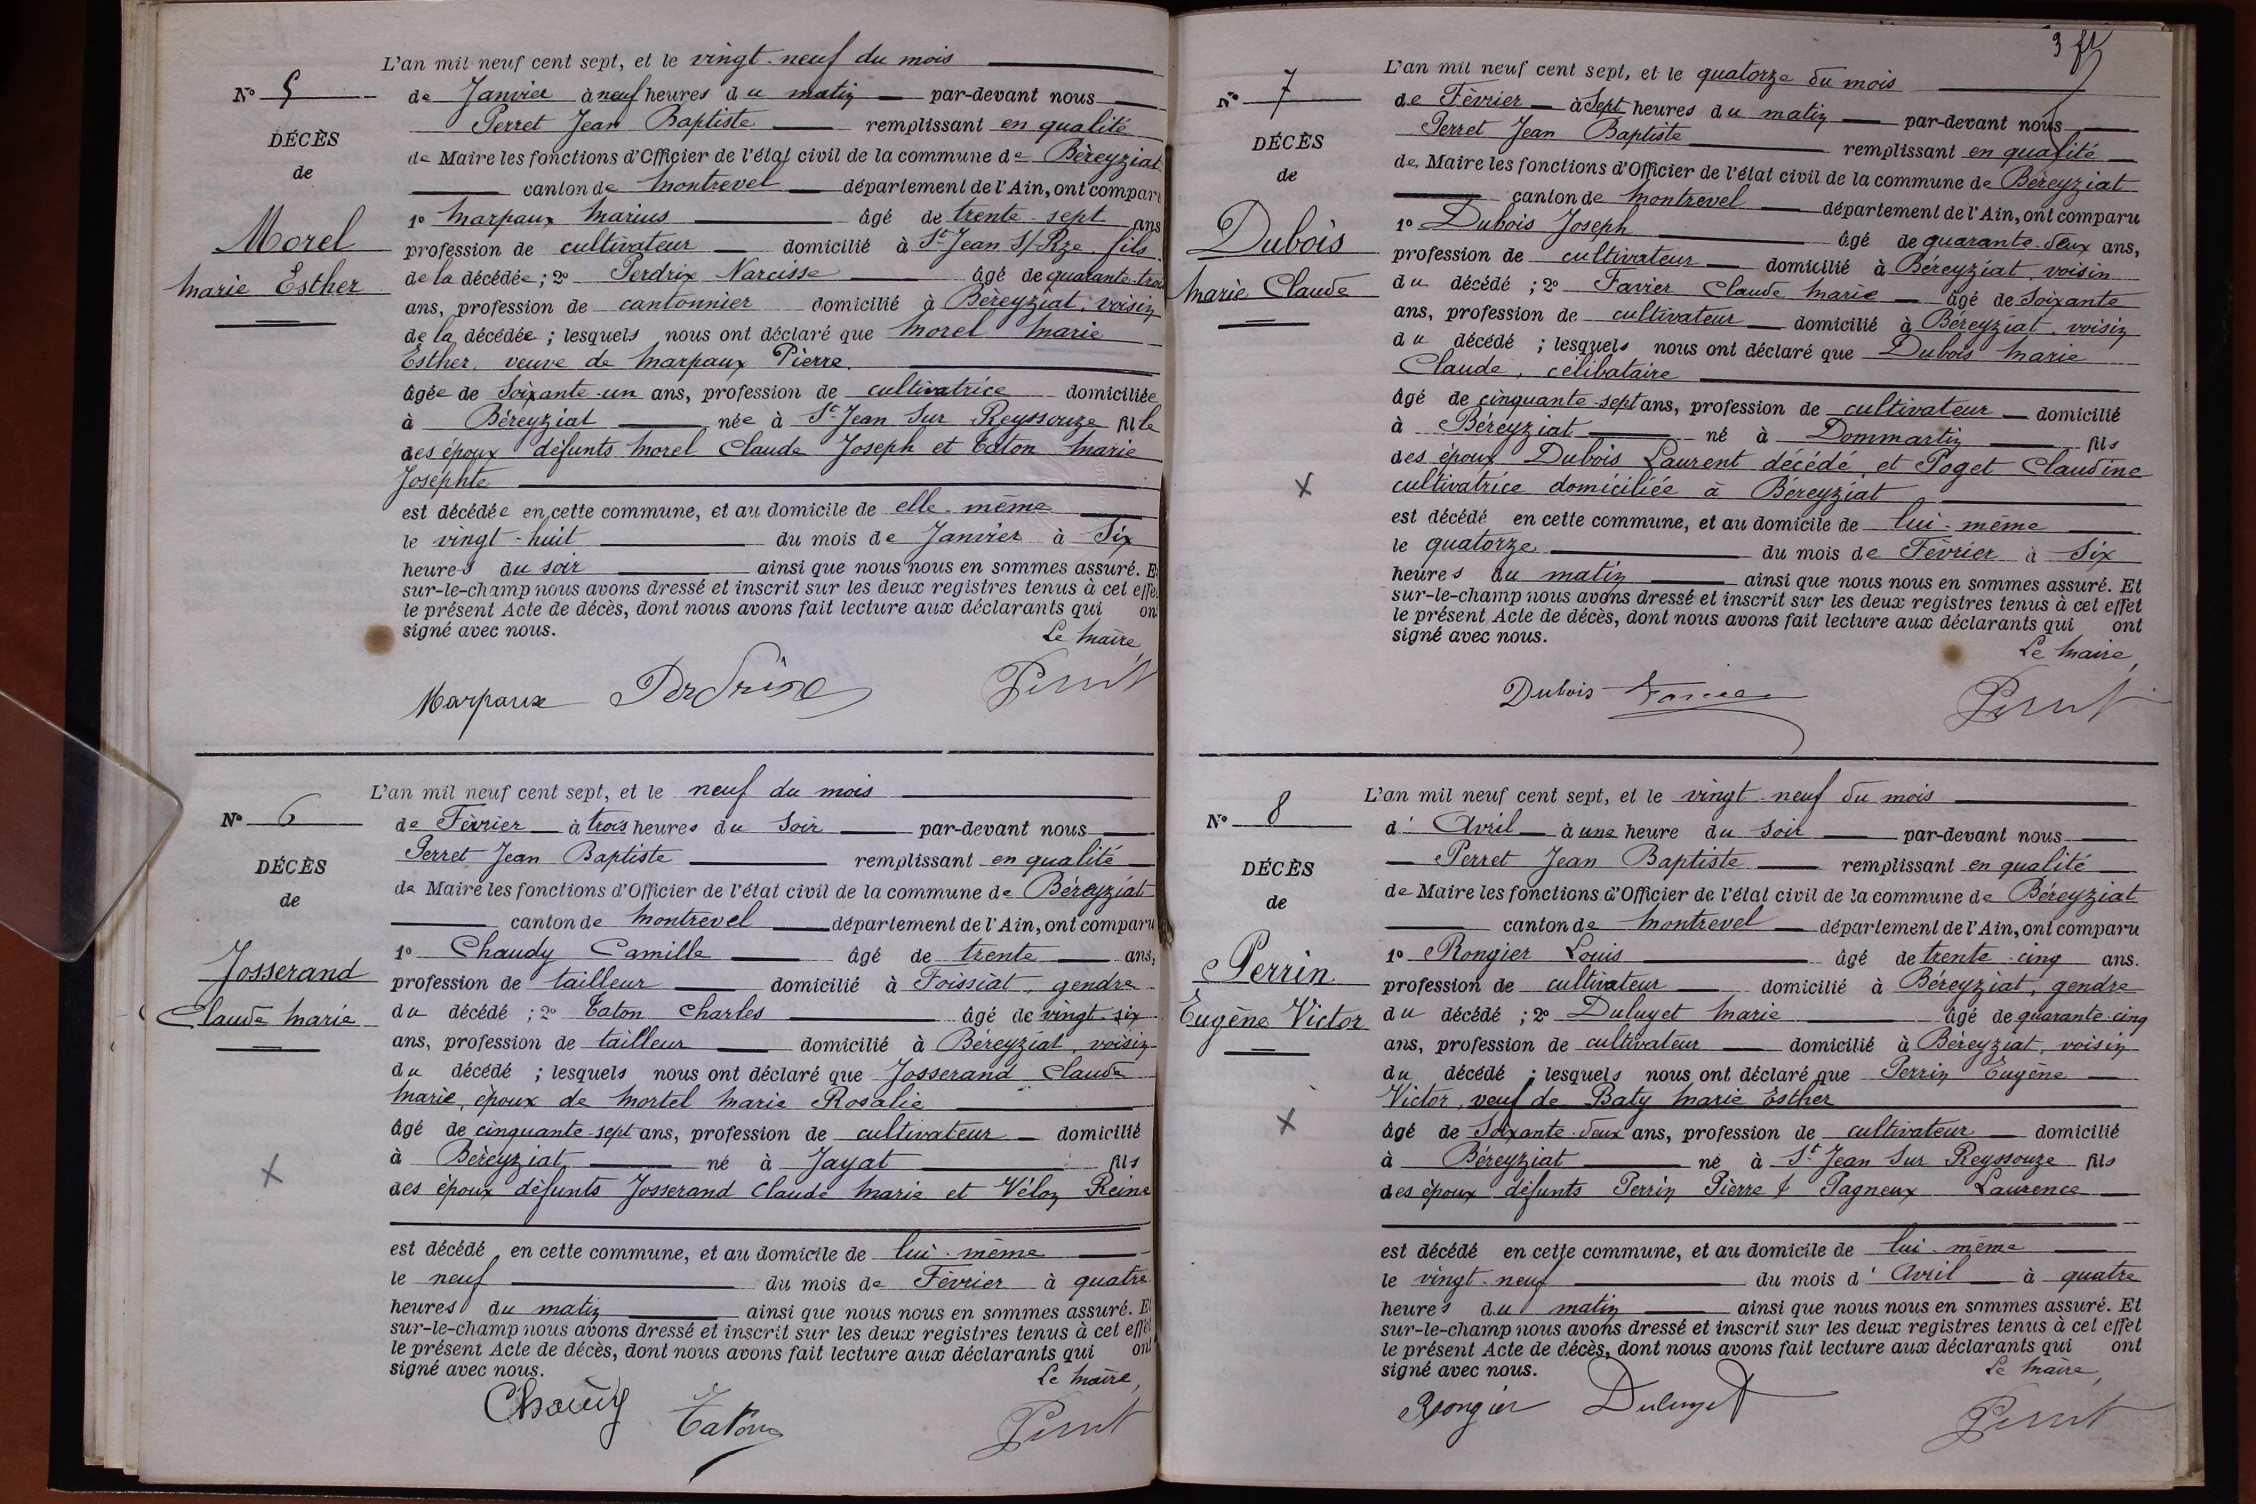 L'an mil neuf cent sept, et le vingt-neuf du mois
N° 5
de Janvier à neuf heures du matin par-devant nous
Perret Jean Baptiste remplissant en qualité
DÉCÈS
de Maire les fonctions d'Officier de l'état civil de la commune de Béreyziat
de
canton de Montrevel département de l'Ain, ont comparu
1° Marpaux Marius âgé de trente-sept ans
Morel
profession de cultivateur domicilié à St Jean s/Rze fils
de la décédée; 2° Perdrix Narcisse âgé de quarante-trois
Marie Esther
ans, profession de cantonnier domicilié à Béreyziat, voisin
de la décédée; lesquels nous ont déclaré que Morel Marie
Esther, veuve de Marpaux Pierre.
âgée de Soixante-un ans, profession de cultivatrice domiciliée
à Béreyziat née à St Jean Sur Reyssouze fille
des époux défunts Morel Claude Joseph et Caton Marie
Josephte
est décédée en cette commune, et au domicile de elle-même
le vingt-huit du mois de Janvier à Six
heures du soir ainsi que nous nous en sommes assuré. Et
sur-le-champ nous avons dressé et inscrit sur les deux registres tenus à cet effet
le présent Acte de décès, dont nous avons fait lecture aux déclarants qui ont
signé avec nous.
Le Maire,
Marpaux Perdrix Perret
L'an mil neuf cent sept, et le neuf du mois
N° 6
de Février à trois heures du Soir par-devant nous
Perret Jean Baptiste remplissant en qualité
DÉCÈS
de Maire les fonctions d'Officier de l'état civil de la commune de Béreyziat
de
canton de Montrevel département de l'Ain, ont comparu
1° Chaudy Camille âgé de trente ans,
Josserand
profession de tailleur domicilié à Foissiat, gendre
du décédé; 2° Caton Charles âgé de vingt-six
Claude Marie
ans, profession de tailleur domicilié à Béreyziat, voisin
du décédé; lesquels nous ont déclaré que Josserand Claude
Marie, époux de Mortel Marie Rosalie
âgé de cinquante-sept ans, profession de cultivateur domicilié
à Béreyziat né à Jayat fils
des époux défunts Josserand Claude Marie et Vélon Reine
est décédé en cette commune, et au domicile de lui-même
le neuf du mois de Février à quatre
heures du matin ainsi que nous nous en sommes assuré. Et
sur-le-champ nous avons dressé et inscrit sur les deux registres tenus à cet effet
le présent Acte de décès, dont nous avons fait lecture aux déclarants qui ont
signé avec nous.
Le Maire,
Chaudy Caton Perret
3
L'an mil neuf cent sept, et le quatorze du mois
N° 7
de Février à Sept heures du matin par-devant nous
Perret Jean Baptiste remplissant en qualité
DÉCÈS
de Maire les fonctions d'Officier de l'état civil de la commune de Béreyziat
de
canton de Montrevel département de l'Ain, ont comparu
1° Dubois Joseph âgé de quarante-deux ans,
Dubois
profession de cultivateur domicilié à Béreyziat, voisin
du décédé; 2° Favier Claude Marie âgé de Soixante
Marie Claude
ans, profession de cultivateur domicilié à Béreyziat, voisin
du décédé; lesquels nous ont déclaré que Dubois Marie
Claude, célibataire
âgé de cinquante-sept ans, profession de cultivateur domicilié
à Béreyziat né à Dommartin fils
des époux Dubois Laurent décédé et Poget Claudine
cultivatrice domiciliée à Béreyziat
est décédé en cette commune, et au domicile de lui-même
le quatorze du mois de Février à Six
heures du matin ainsi que nous nous en sommes assuré. Et
sur-le-champ nous avons dressé et inscrit sur les deux registres tenus à cet effet
le présent Acte de décès, dont nous avons fait lecture aux déclarants qui ont
signé avec nous.
Le Maire,
Dubois Favier Perret
L'an mil neuf cent sept, et le vingt-neuf du mois
N° 8
d'Avril à une heure du Soir par-devant nous
Perret Jean Baptiste remplissant en qualité
DÉCÈS
de Maire les fonctions d'Officier de l'état civil de la commune de Béreyziat
de
canton de Montrevel département de l'Ain, ont comparu
1° Rongier Louis âgé de trente-cinq ans.
Perrin
profession de cultivateur domicilié à Béreyziat, gendre
du décédé; 2° Duluyet Marie âgé de quarante-cinq
Eugène Victor
ans, profession de cultivateur domicilié à Béreyziat, voisin
du décédé; lesquels nous ont déclaré que Perrin Eugène
Victor, veuf de Baty Marie Esther
âgé de Soixante-deux ans, profession de cultivateur domicilié
à Béreyziat né à St Jean Sur Reyssouze fils
des époux défunts Perrin Pierre & Pagneux Laurence
est décédé en cette commune, et au domicile de lui-même
le vingt-neuf du mois d'Avril à quatre
heures du matin ainsi que nous nous en sommes assuré. Et
sur-le-champ nous avons dressé et inscrit sur les deux registres tenus à cet effet
le présent Acte de décès, dont nous avons fait lecture aux déclarants qui ont
signé avec nous.
Le Maire,
Rongier Duluyet Perret